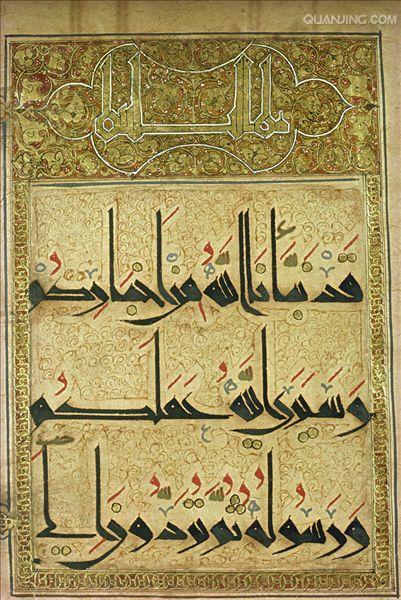 QUANJING.COM
قد نبأنا الله من اخباركم
وسيرى الله عملكم
ورسوله ثم تردون إلى